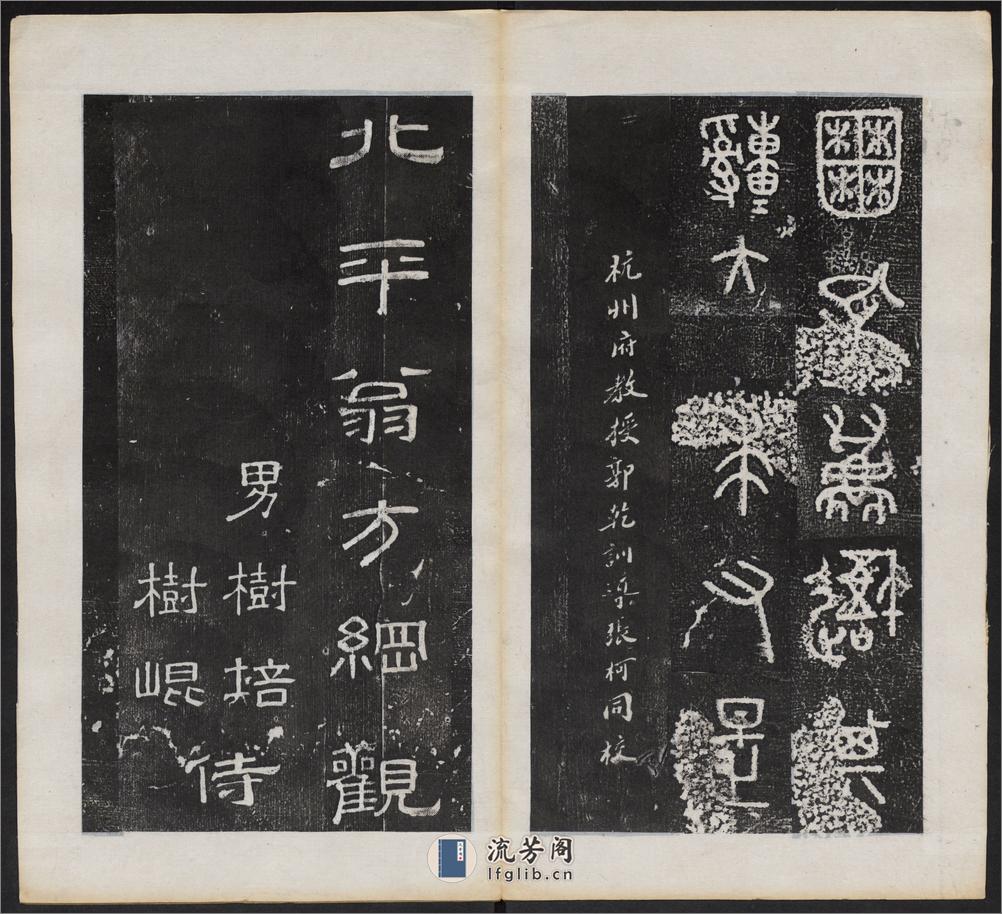 囿孔其
大求又是
杭州府教授郭乾訓張柯同校
北平翁方綱觀
男樹培
樹崐
侍
流芳阁
lfglib.cn